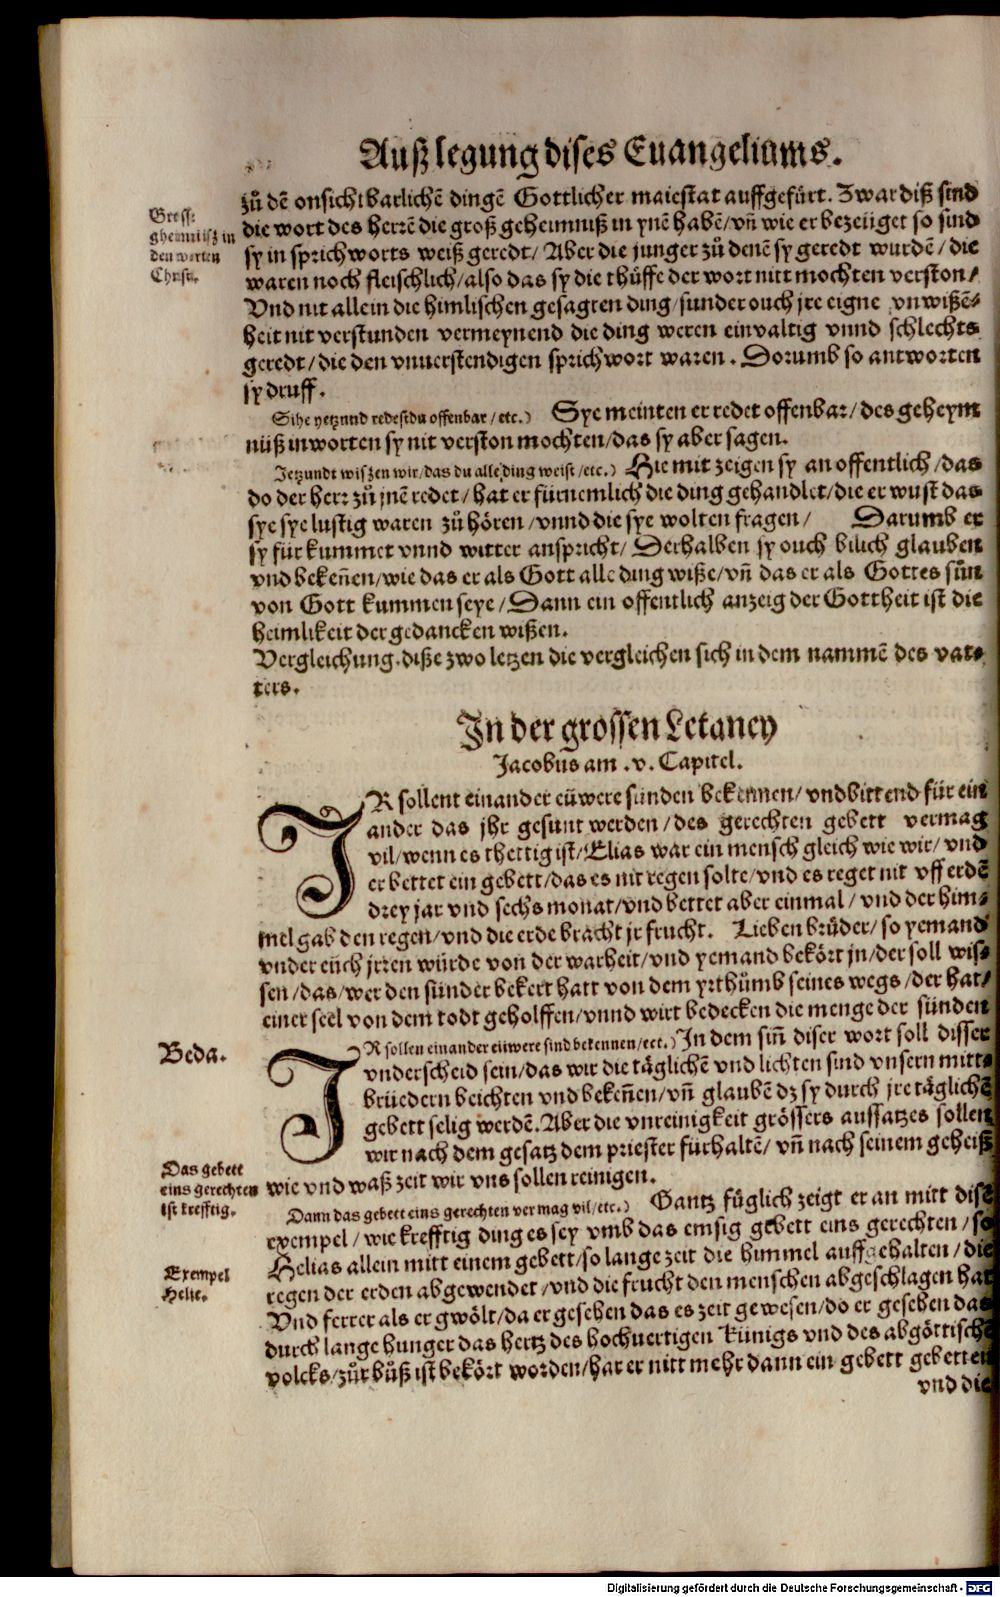 Außlegung dises Euangeliums.
zů dē onsichtbarlichē dingē Gottlicher maiestat auffgefürt. Zwar diß sind
die wort des herrē die groß geheimnuß in ynē habē/ vñ wie er bezeüget so sind
sy in sprichworts weiß geredt/ Aber die junger zů denē sy geredt wurdē/ die
waren noch fleischlich/ also das sy die thüffe der wort nitt mochten verston/
Vnd nit allein die himlischen gesagten ding/ sunder ouch jre eigne vnwißē-
heit nit verstunden vermeynend die ding weren einvaltig vnnd schlechts
geredt/ die den vnuerstendigen sprichwort waren. Dorumb so antworten
sy druff.
Gross
gheimnüsz in
den worten
Christi.
Sihe yetzund redestdu offenbar/ etc.) Sye meinten er redet offenbar/ des geheym
nüß in worten sy nit verston mochten/ das sy aber sagen.
Jetzundt wiszen wir/ das du alle ding weist/ etc.) Hie mit zeigen sy an offentlich/ das
do der herr zů jnē redet/ hat er fürnemlich die ding gehandlet/ die er wust das
sye sye lustig waren zů hören/ vnnd die sye wolten fragen/ Darumb er
sy fürkummet vnnd witter anspricht/ Derhalben sy ouch bilich glauben
vnd bekeñen/ wie das er als Gott alle ding wiße/ vñ das er als Gottes sůn
von Gott kummen seye/ Dann ein offentlich anzeig der Gottheit ist die
heimlikeit der gedancken wißen.
Vergleichung. diße zwo letzen die vergleichen sich in dem nammē des vat-
ters.
In der grossen Letaney
Jacobus am .v. Capitel.
IR sollent einander eüwere sünden bekennen/ vnd bittend für ein
ander das jhr gesunt werden/ des gerechten gebett vermag
vil/ wenn es thettig ist/ Elias war ein mensch gleich wie wir/ vnd
er bettet ein gebett/ das es nit regen solte/ vnd es reget nit vff erdē
drey jar vnd sechs monat/ vnd bettet aber einmal/ vnd der him-
mel gab den regen/ vnd die erde bracht jr frucht. Lieben brüder/ so yemand
vnder eüch jrren würde von der warheit/ vnd yemand bekört jn/ der soll wis-
sen/ das/ wer den sünder bekert hatt von dem yrthůmb seines wegs/ der hat/
einer seel von dem todt geholffen/ vnnd wirt bedecken die menge der sünden
Beda.
IR sollen einander eüwere sind bekennen/ etc.) In dem siñ diser wort soll disser
vnderscheid sein/ das wir die täglichē vnd lichten sind vnsern mitt-
brüedern beichten vnd bekeñen/ vñ glaubē dz sy durch jre täglichē
gebett selig werdē. Aber die vnreinigkeit grössers aussatzes sollen
wir nach dem gesatz dem priester fürhaltē/ vñ nach seinem geheiß
wie vnd waß zeit wir vns sollen reinigen.
Das gebett
eins gerechten
ist krefftig.
Dann das gebett eins gerechten vermag vil/ etc.) Gantz füglich zeigt er an mitt disē
exempel/ wie krefftig ding es sey vmb das emsig gebett eins gerechten/ so
Helias allein mitt einem gebett/ so lange zeit die himmel auffgehalten/ die
regen der erden abgewendet/ vnd die frucht den menschen abgeschlagen hat
Vnd ferrer als er gwölt/ da er gesehen das es zeit gewesen/ do er gesehen das
durch lange hunger das hertz des hochuertigen Künigs vnd des abgöttischē
volcks/ zůr bůß ist bekört worden/ har er nitt mehr dann ein gebett gebetten
Exempel
Helie.
vnd die
Digitalisierung gefördert durch die Deutsche Forschungsgemeinschaft - DFG